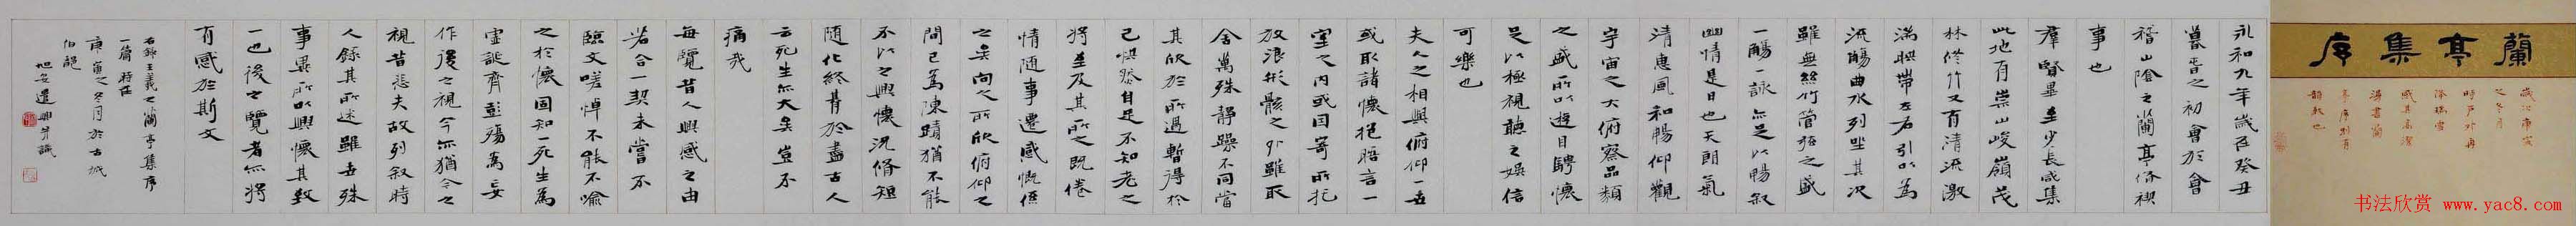 蘭亭集序
歲次庚寅
之冬月
時戶外再
感其高潔
永和九年歲在癸丑
暮春之初會於會
稽山陰之蘭亭脩禊
事也
羣賢畢至少長咸集
此地有崇山峻嶺茂
林修竹又有清流激
湍映帶左右引以為
流觴曲水列坐其次
雖無絲竹管弦之盛
一觴一詠亦足以暢敘
幽情是日也天朗氣
清惠風和暢仰觀
宇宙之大俯察品類
之盛所以遊目騁懷
足以極視聽之娛信
可樂也
夫人之相與俯仰一世
或取諸懷抱晤言一
室之內或因寄所托
放浪形骸之外雖取
舍萬殊靜躁不同當
其欣於所遇暫得於
己快然自足不知老之
將至及其所之既倦
情隨事遷感慨係
之矣向之所欣俯仰之
間已為陳蹟猶不能
不以之興懷況脩短
隨化終期於盡古人
云死生亦大矣豈不
痛哉
每覽昔人興感之由
若合一契未嘗不
臨文嗟悼不能喻
之於懷固知一死生為
虛誕齊彭殤為妄
作後之視今亦猶今之
視昔悲夫故列敘時
人錄其所述雖世殊
事異所以興懷其致
一也後之覽者亦將
有感於斯文
右錄王羲之蘭亭集序
一篇
庚寅之冬月於古城
書法欣賞 www.yac8.com